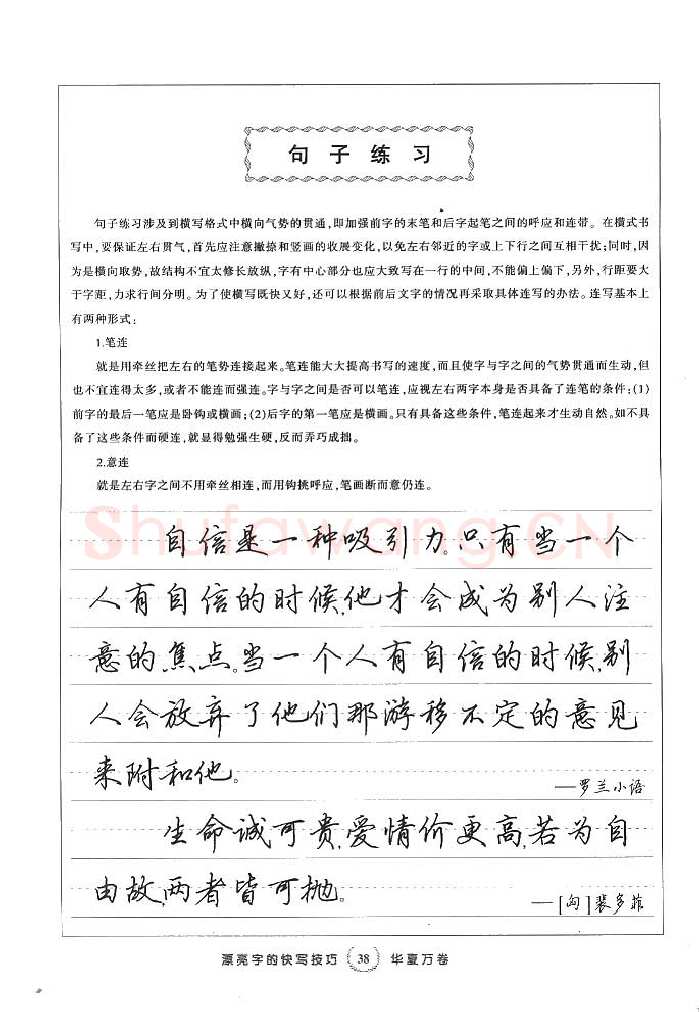 句子练习
句子练习涉及到横写格式中横向气势的贯通,即加强前字的末笔和后字起笔之间的呼应和连带。在横式书
写中,要保证左右贯气,首先应注意撇捺和竖画的收展变化,以免左右邻近的字或上下行之间互相干扰;同时,因
为是横向取势,故结构不宜太修长放纵,字有中心部分也应大致写在一行的中间,不能偏上偏下,另外,行距要大
于字距,力求行间分明。为了使横写既快又好,还可以根据前后文字的情况再采取具体连写的办法。连写基本上
有两种形式:
1.笔连
就是用牵丝把左右的笔势连接起来。笔连能大大提高书写的速度,而且使字与字之间的气势贯通而生动,但
也不宜连得太多,或者不能连而强连。字与字之间是否可以笔连,应视左右两字本身是否具备了连笔的条件:(1)
前字的最后一笔应是卧钩或横画;(2)后字的第一笔应是横画。只有具备这些条件,笔连起来才生动自然。如不具
备了这些条件而硬连,就显得勉强生硬,反而弄巧成拙。
2.意连
就是左右字之间不用牵丝相连,而用钩挑呼应,笔画断而意仍连。
Shufawang.CN
自信是一种吸引力。只有当一个
人有自信的时候,他才会成为别人注
意的焦点。当一个人有自信的时候,别
人会放弃了他们那游移不定的意见
来附和他。
——罗兰小语
生命诚可贵,爱情价更高,若为自
由故,两者皆可抛。
——[匈]裴多菲
漂亮字的快写技巧 38 华夏万卷